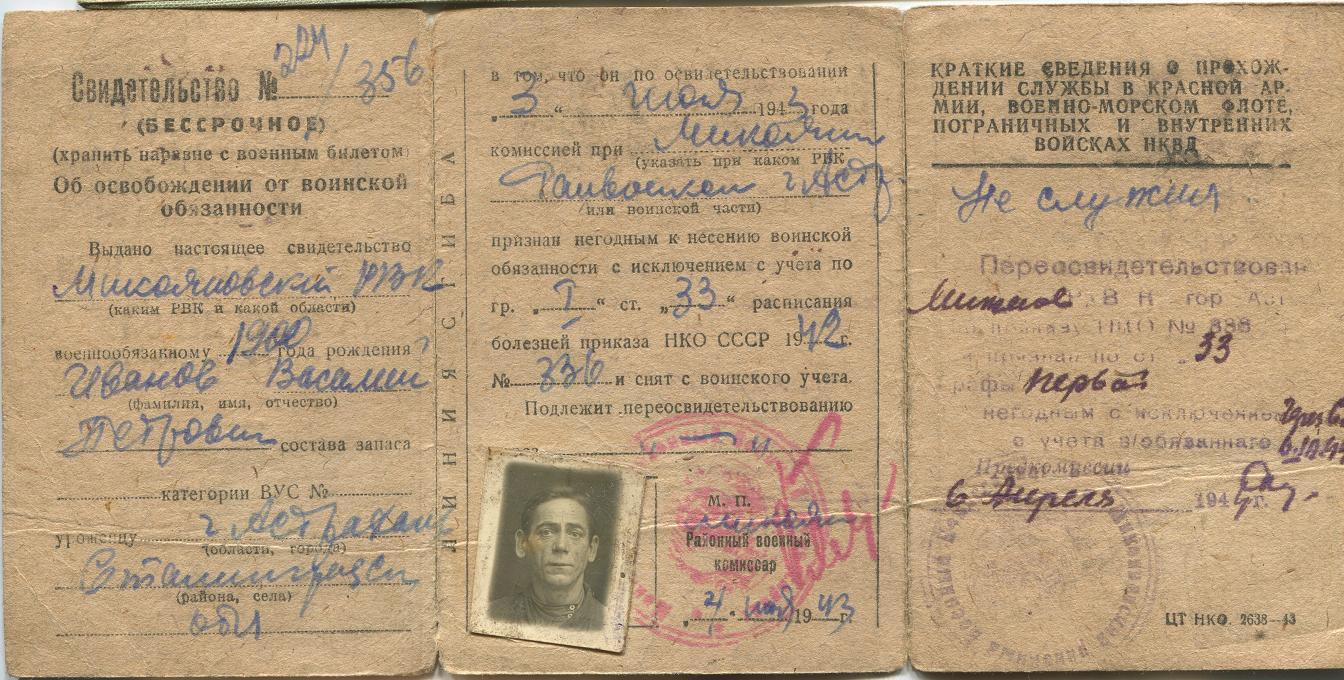 Свидетельство № 224/356
(БЕССРОЧНОЕ)
(хранить наравне с военным билетом)
Об освобождении от воинской
обязанности
Выдано настоящее свидетельство
Микояновский РВК
(каким РВК и какой области)
военнообязанному 1900 года рождения
Иванов Василий
(фамилия, имя, отчество)
Петрович состава запаса
категории ВУС №
уроженцу г. Астрахань
(области, города)
Сталинградск
(района, села)
обл
ЛИНИЯ СГИБА
в том, что он по освидетельствовании
„3“ июля 1943 года
комиссией при Микоянов
(указать при каком РВК
Райвоенком г. Астр.
или воинской части)
признан негодным к несению воинской
обязанности с исключением с учета по
гр. „I“ ст. „33“ расписания
болезней приказа НКО СССР 1942 г.
№ 336 и снят с воинского учета.
Подлежит переосвидетельствованию
М. П.
Районный военный
комиссар
„4“ 1943 г.
КРАТКИЕ СВЕДЕНИЯ О ПРОХОЖ-
ДЕНИИ СЛУЖБЫ В КРАСНОЙ АР-
МИИ, ВОЕННО-МОРСКОМ ФЛОТЕ,
ПОГРАНИЧНЫХ И ВНУТРЕННИХ
ВОЙСКАХ НКВД
Не служил
Переосвидетельствован
Р В К гор Аст
приказу НКО № 336
и признан по ст. 33
графы первой
негодным с исключением
с учета в/обязанного
Предкомиссии
6 Апреля 194 г.
ЦТ НКО. 2638—43